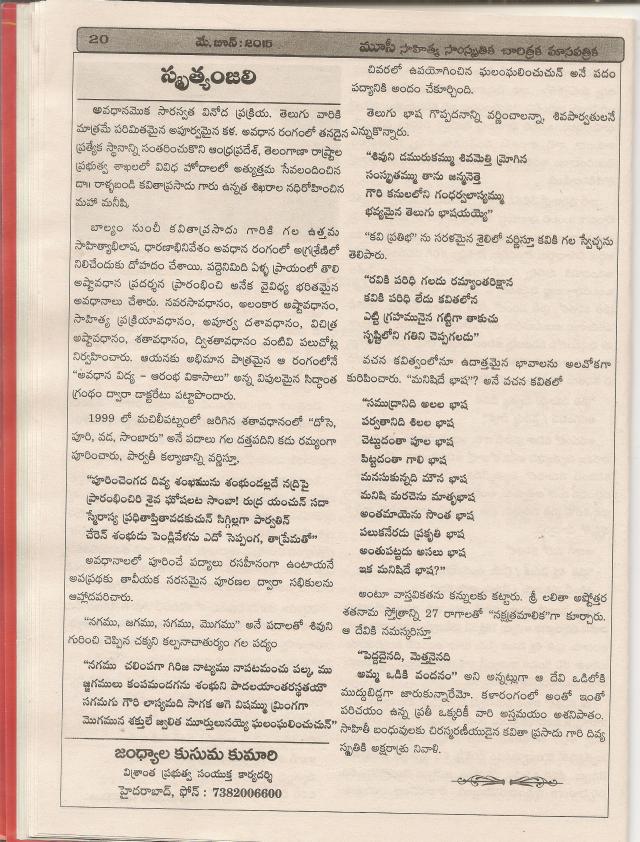 20 మే, జూన్ : 2015 మూసీ సాహిత్య సాంస్కృతిక చారిత్రక మాసపత్రిక
స్మృత్యంజలి
అవధానమొక సారస్వత వినోద ప్రక్రియ. తెలుగు వారికి
మాత్రమే పరిమితమైన అపూర్వమైన కళ. అవధాన రంగంలో తనదైన
ప్రత్యేక స్థానాన్ని సంతరించుకొని ఆంధ్రప్రదేశ్, తెలంగాణా రాష్ట్రాల
ప్రభుత్వ శాఖలలో వివిధ హోదాలలో అత్యుత్తమ సేవలందించిన
డా॥ రాళ్ళబండి కవితాప్రసాదు గారు ఉన్నత శిఖరాల నధిరోహించిన
మహా మనీషి.
బాల్యం నుంచీ కవితాప్రసాదు గారికి గల ఉత్తమ
సాహిత్యాభిలాష, ధారణాభినివేశం అవధాన రంగంలో అగ్రశ్రేణిలో
నిలిచేందుకు దోహదం చేశాయి. పద్దెనిమిది ఏళ్ళ ప్రాయంలో తొలి
అష్టావధాన ప్రదర్శన ప్రారంభించి అనేక వైవిధ్య భరితమైన
అవధానాలు చేశారు. నవరసావధానం, అలంకార అష్టావధానం,
సాహిత్య ప్రక్రియావధానం, అపూర్వ దశావధానం, విచిత్ర
అష్టావధానం, శతావధానం, ద్విశతావధానం వంటివి పలుచోట్ల
నిర్వహించారు. ఆయనకు అభిమాన పాత్రమైన ఆ రంగంలోనే
"అవధాన విద్య – ఆరంభ వికాసాలు" అన్న విపులమైన సిద్ధాంత
గ్రంథం ద్వారా డాక్టరేటు పట్టాపొందారు.
1999 లో మచిలీపట్నంలో జరిగిన శతావధానంలో "దోసె,
పూరి, వడ, సాంబారు" అనే పదాలు గల దత్తపదిని కడు రమ్యంగా
పూరించారు, పార్వతీ కల్యాణాన్ని వర్ణిస్తూ,
"పూరించెంగద దివ్య శంఖమును శంభుండల్లదే నద్రిపై
ప్రారంభించిరి శైవ ఘోషలట సాంబా! రుద్ర యంచున్ సదా
స్మేరాస్య ప్రధితాప్తితావడకుచున్ సిగ్గిల్లగా పార్వతిన్
చేరిన్ శంభుడు పెండ్లివేళను ఎదో సెప్పంగ, తాప్రేమతో"
అవధానాలలో పూరించే పద్యాలు రసహీనంగా ఉంటాయనే
అపప్రథకు తావీయక సరసమైన పూరణల ద్వారా సభికులను
ఆహ్లాదపరిచారు.
"నగము, జగము, సగము, మొగము" అనే పదాలతో శివుని
గురించి చెప్పిన చక్కని కల్పనాచాతుర్యం గల పద్యం
"నగము చలింపగా గిరిజ నాట్యము నాపటమంచు పల్క, ము
జ్జగములు కంపమందగను శంభుని పాదలయాంతరస్థతయొ
సగమగు గౌరి లాస్యమది సాగక ఆగె విషమ్ము మ్రింగగా
మొగమున శక్తులే జ్వలిత మూర్తులునయ్యె ఘలంఘలించుచున్"
జంధ్యాల కుసుమ కుమారి
విశ్రాంత ప్రభుత్వ సంయుక్త కార్యదర్శి
హైదరాబాద్, ఫోన్ : 7382006600
చివరలో ఉపయోగించిన ఘలంఘలించుచున్ అనే పదం
పద్యానికి అందం చేకూర్చింది.
తెలుగు భాష గొప్పదనాన్ని వర్ణించాలన్నా, శివపార్వతులనే
ఎన్నుకొన్నారు.
"శివుని డమురుకమ్ము శివమెత్తి మ్రోగిన
సంస్కృతమ్ము తాను జన్మనెత్తె
గౌరి కనులలోని గంధర్వలాస్యమ్ము
భవ్యమైన తెలుగు భాషయయ్యె"
"కవి ప్రతిభ" ను సరళమైన శైలిలో వర్ణిస్తూ కవికి గల స్వేచ్ఛను
తెలిపారు.
"రవికి పరిధి గలదు రమ్యాంతరిక్షాన
కవికి పరిధి లేదు కవితలోన
ఎట్టి గ్రహమునైన గట్టిగా తాకుచు
సృష్టిలోని గతిని చెప్పగలదు"
వచన కవిత్వంలోనూ ఉదాత్తమైన భావాలను అలవోకగా
కురిపించారు. "మనిషిదే భాష"? అనే వచన కవితలో
"సముద్రానిది అలల భాష
పర్వతానిది శిలల భాష
చెట్టుదంతా పూల భాష
పిట్టదంతా గాలి భాష
మనసుకున్నది మౌన భాష
మనిషి మరచెను మాతృభాష
అంతమాయెను సొంత భాష
పలుకనేరదు ప్రకృతి భాష
అంతుపట్టదు అసలు భాష
ఇక మనిషిదే భాష?"
అంటూ వాస్తవికతను కన్నులకు కట్టారు. శ్రీ లలితా అష్టోత్తర
శతనామ స్తోత్రాన్ని 27 రాగాలతో "నక్షత్రమాలిక"గా కూర్చారు.
ఆ దేవికి నమస్కరిస్తూ
"పెద్దదైనది, మెత్తనైనది
అమ్మ ఒడికి వందనం" అని అన్నట్లుగా ఆ దేవి ఒడిలోకి
ముద్దుబిడ్డగా జారుకున్నారేమో. కళారంగంలో అంతో ఇంతో
పరిచయం ఉన్న ప్రతీ ఒక్కరికీ వారి అస్తమయం అశనిపాతం.
సాహితీ బంధువులకు చిరస్మరణీయుడైన కవితా ప్రసాదు గారి దివ్య
స్మృతికి అక్షరాశ్రు నివాళి.